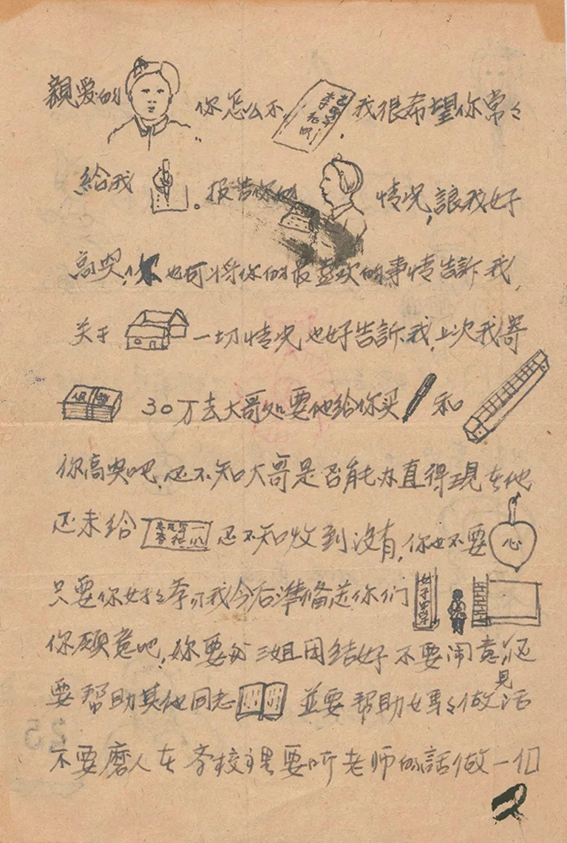 親爱的 你怎么不 我很希望你常々
給我 。报告你的 情况,讓我好
高兴,你也可将你的最喜欢的事情告訴我,
关于 一切情况也好告訴我,上次我寄
30万去大哥处要他给你买 和
你高兴吧,还不知大哥是否能办直得現在他
还未给 还不知收到没有,你也不要
心
只要你好々学习我今后準備送你们
你願意吧,妳要分三姐团结好不要闹意
見
还
要帮助其他同志 並要帮助妈々做活
不要磨人在学校里要听老师的話做一個